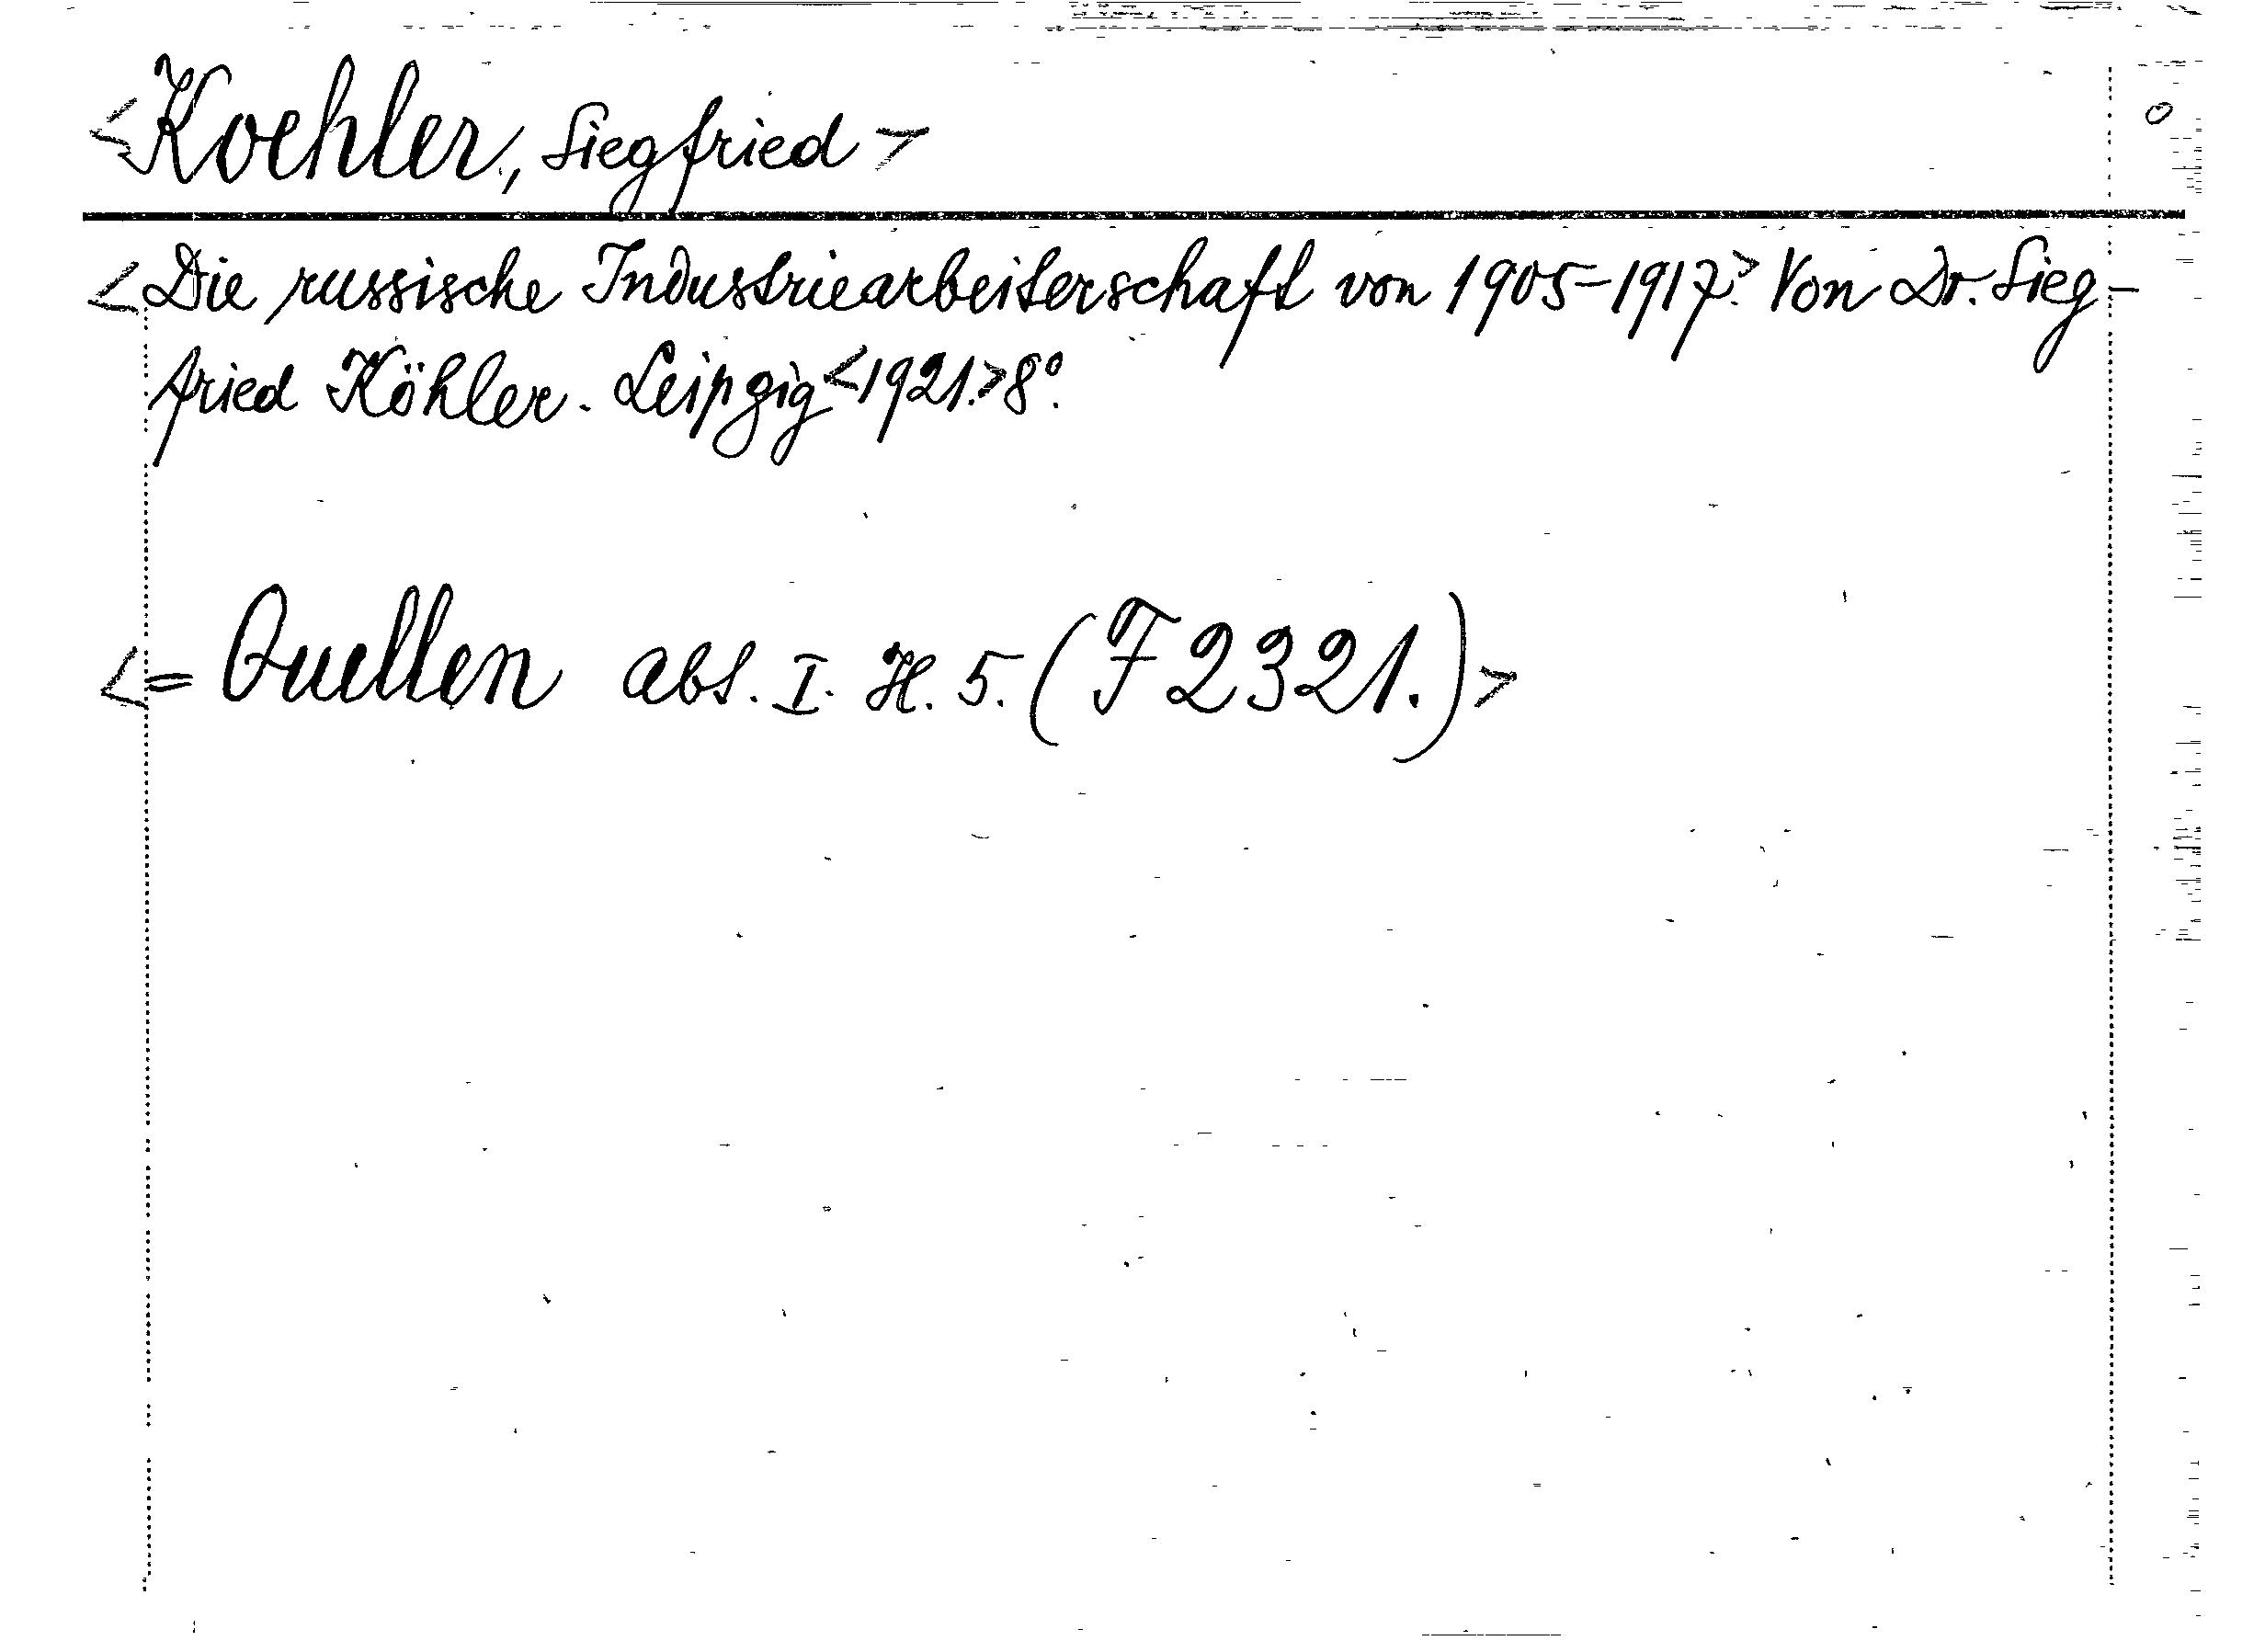 <Koehler, Siegfried>
<Die russische Industriearbeiterschaft von 1905-1917.> Von Dr. Sieg-
fried Köhler. Leipzig <1921.> 8°.
<= Quellen abt. I. H. 5. (F 2321.)>